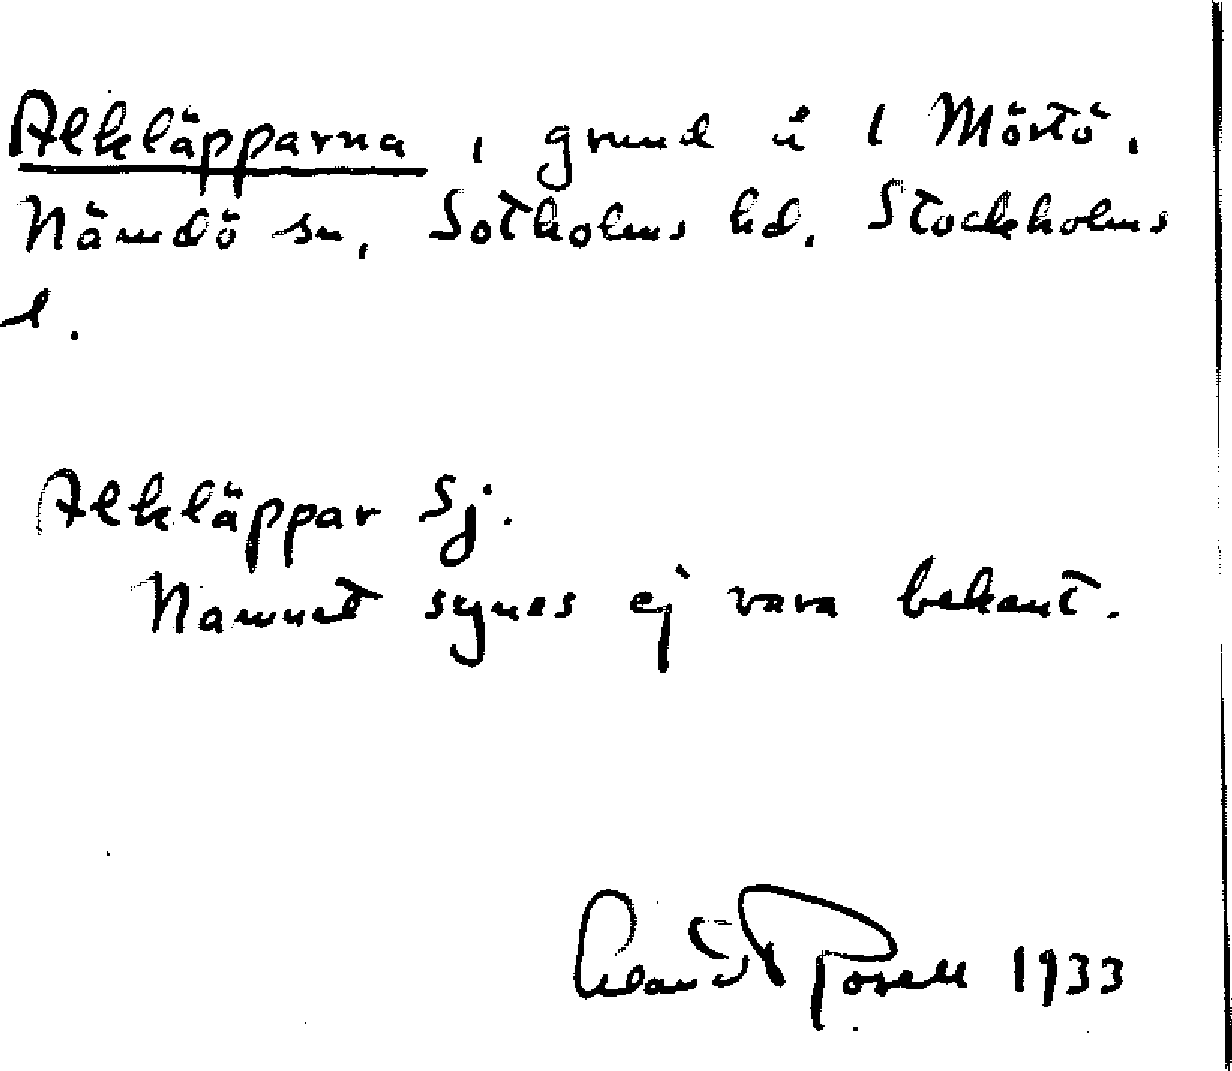 Alkläpparna, grund å 1 Mörtö,
Nämdö sn, Sotholms hd, Stockholms
l.
Alkläppar Sj.
Namnet synes ej vara bekant.
1933